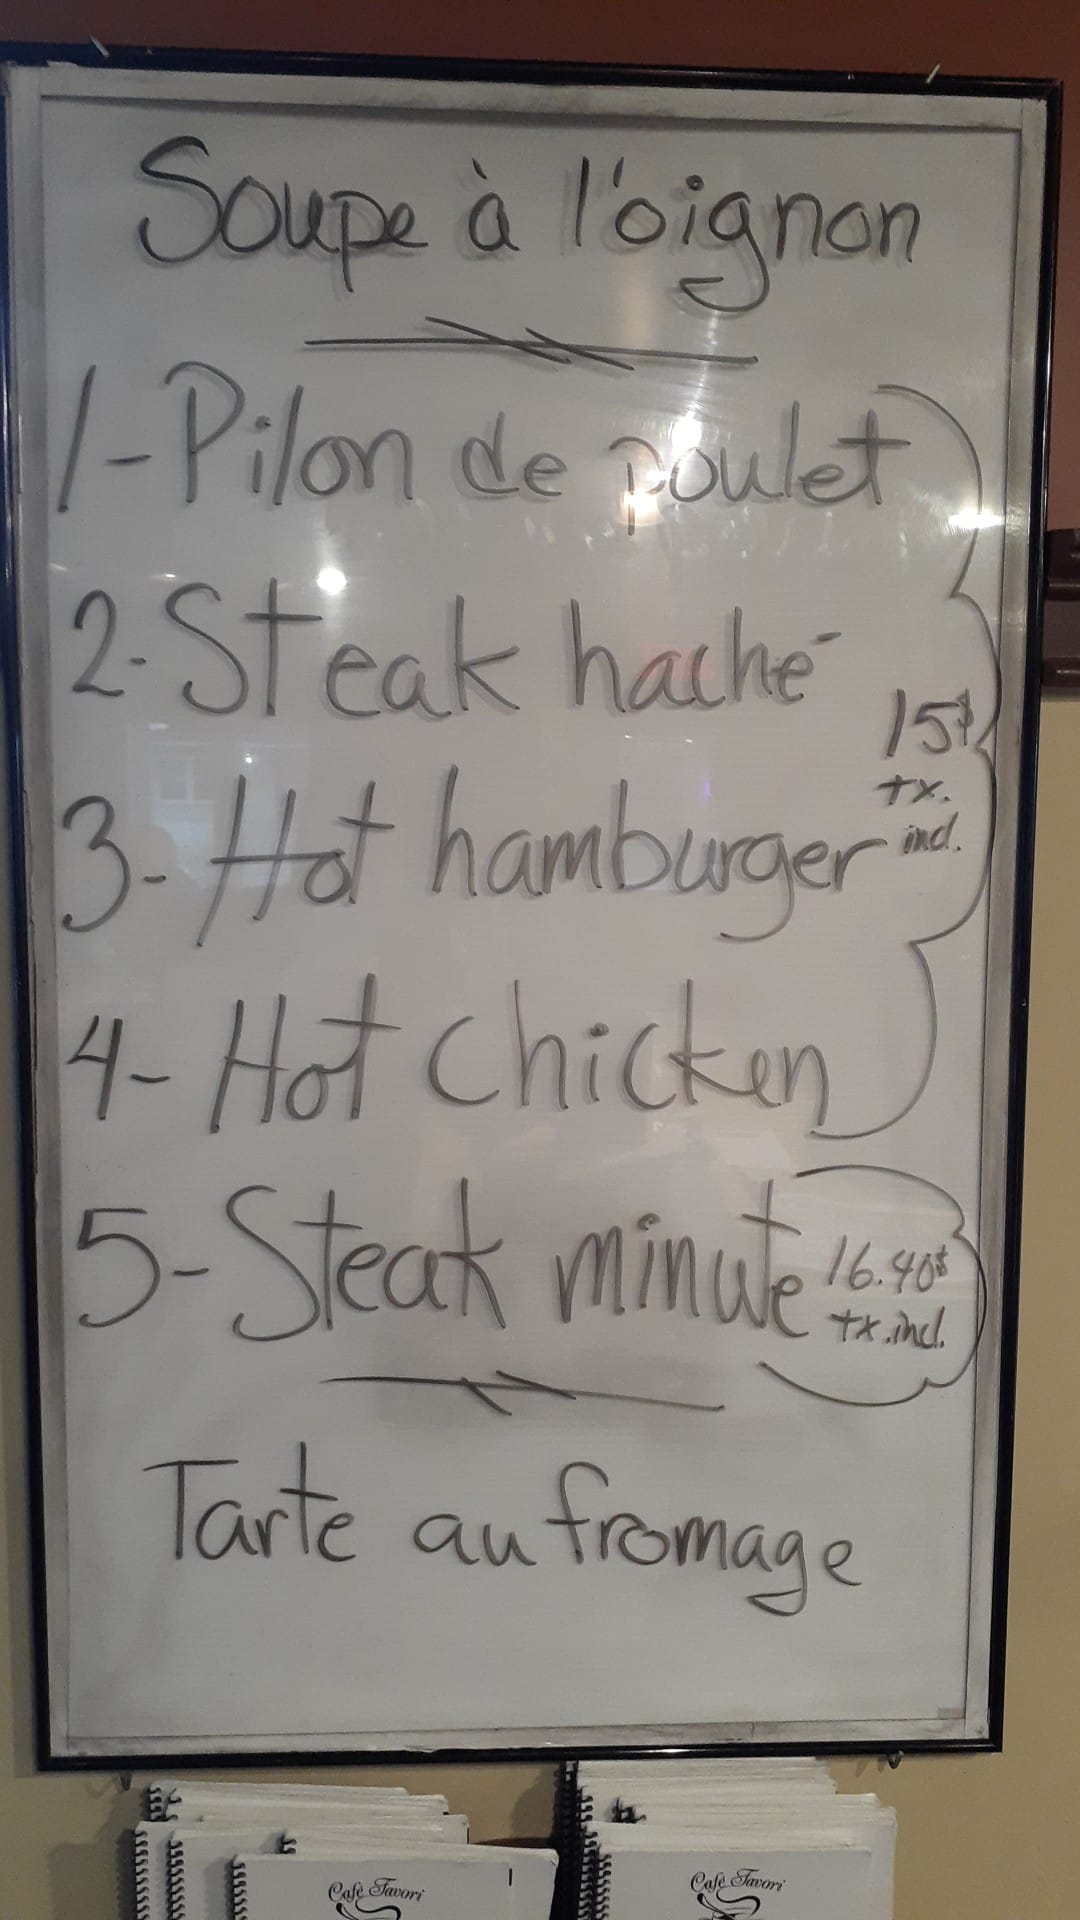 Soupe à l'oignon
1- Pilon de poulet
2- Steak haché
15$
tx.
incl.
3- Hot hamburger
4- Hot chicken
5- Steak minute
16.40$
tx.incl.
Tarte au fromage
Café Favori
Café Favori